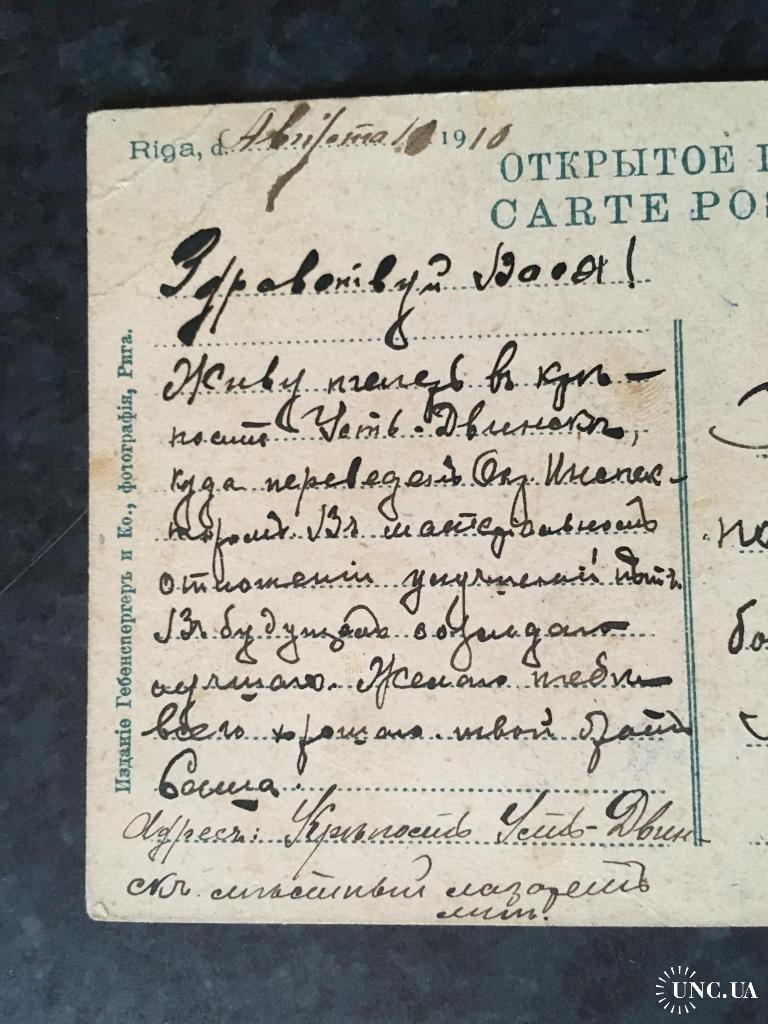 Riga, d. Августа 10 1910
ОТКРЫТОЕ
CARTE POS
Здравствуй Вася!
Живу теперь въ крѣ-
пости Усть-Двинскъ,
куда переведенъ Окр. Инспек-
торомъ. Въ матеріальномъ
отношеніи улучшеній нѣтъ.
Въ будущемъ ожидаю
лучшаго. Желаю тебѣ
всего хорошаго твой братъ
Саша.
Адресъ: Крѣпость Усть-Двин
скъ мѣстный лазаретъ
Изданіе Гебенспергеръ и Ко., фотографія, Рига.
UNC.UA